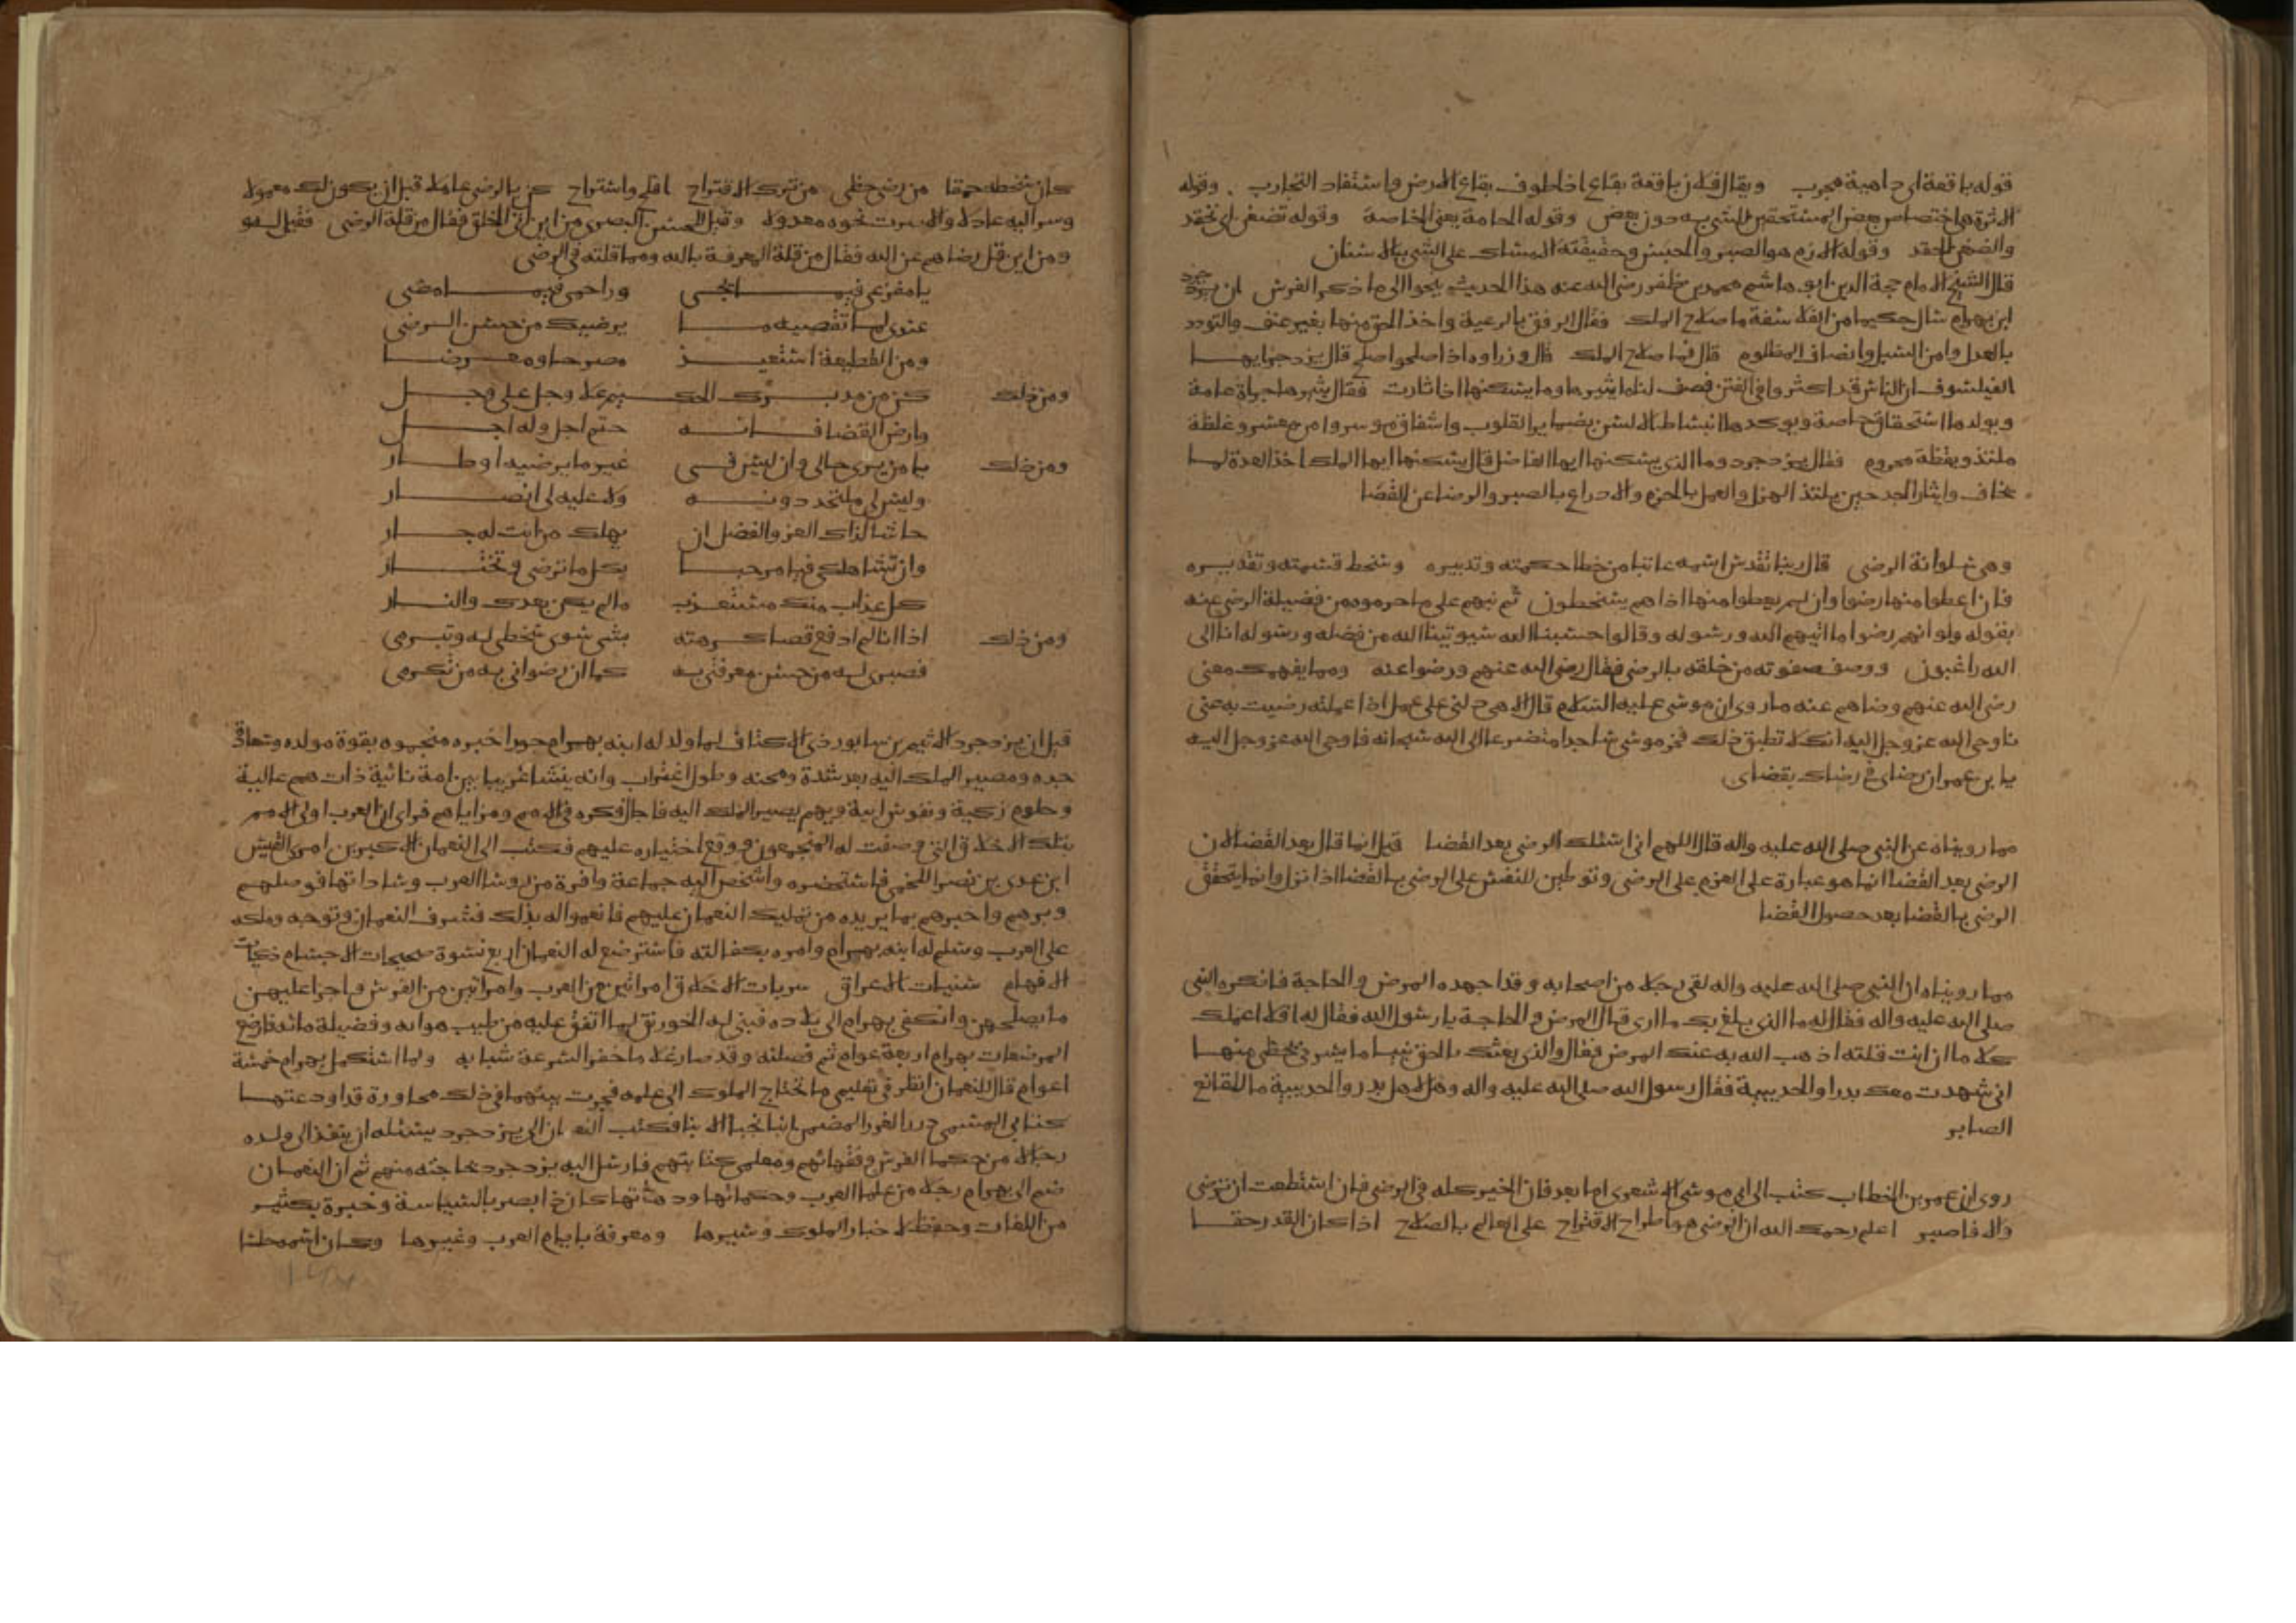 قوله باقعة اى داهية مجرب ويقال فلان باقعة بقاع اذا طوف بقاع الارض واستفاد التجارب وقوله
الاثرة هى اختصاص بعض المستحقين للشى به دون بعض وقوله الحامة يعنى الخاصة وقوله تضغن اى تحقد
والضغن الحقد وقوله الازم هو الصبر والحبس وحقيقته الامساك على الشى بالاسنان
قال الشيخ الامام حجة الدين ابو هاشم محمد بن ظفر رضى الله عنه هذا الحديث ينحوا الى ما ذكر الفرس ان يزدجرد
ابن بهرام سال حكيما من الفلاسفة ما صلاح الملك فقال الرفق بالرعية واخذ الحق منها بغير عنف والتودد
بالعدل وامن السبل وانصاف المظلوم قال فما صلاح الملك قال وزراوه اذا صلحوا صلح قال يزدجرد ايها
الفيلسوف ان الناس قد اكثروا فى الفتن فصف لنا ما يثيرها وما يسكنها اذا ثارت فقال يثيرها جراة عامة
ويولدها استحقاق خاصة ويوكدها انبساط الالسن بضماير القلوب واشفاق موسر وامن معسر وغفلة
ملتذ ويقظة محروم فقال يزدجرد وما الذى يسكنها ايها الفاضل قال يسكنها ايها الملك اخذ العدة لما
يخاف وايثار الجد حين يلتذ الهزل والعمل بالحزم والادراع بالصبر والرضا عن القضا
وهى سلوانة الرضى قال ربنا تقدس اسمه عاتبا من خطا حكمته وتدبيره وسخط قسمته وتقديره
فان اعطوا منها رضوا وان لم يعطوا منها اذا هم يسخطون ثم نبههم على ما حرموه من فضيلة الرضى عنه
بقوله ولو انهم رضوا ما اتيهم الله ورسوله وقالوا حسبنا الله سيوتينا الله من فضله ورسوله انا الى
الله راغبون ووصف صفوته من خلقه بالرضى فقال رضى الله عنهم ورضوا عنه ومما يفهمك معنى
رضى الله عنهم ورضاهم عنه ما روى ان موسى عليه السلام قال الاهى دلنى على عمل اذا عملته رضيت به عنى
فاوحى الله عز وجل اليه انك لا تطيق ذلك فخر موسى ساجدا متضرعا الى الله سبحانه فاوحى الله عز وجل اليه
يا بن عمران رضاى فى رضاك بقضاى
مما رويناه عن النبى صلى الله عليه واله قال اللهم انى اسئلك الرضى بعد القضا قيل انما قال بعد القضا لان
الرضى بعد القضا انما هو عبارة على العزم على الرضى وتوطين للنفس على الرضى بالقضا اذا نزل وانما يتحقق
الرضى بالقضا بعد حصول القضا
مما رويناه ان النبى صلى الله عليه واله لقى رجلا من اصحابه وقد اجهده المرض والحاجة فانكره النبى
صلى الله عليه واله فقال له ما الذى بلغ بك ما ارى قال المرض والحاجة يا رسول الله فقال له افلا اعلمك
كلاما ان انت قلته اذهب الله به عنك المرض فقال والذى بعثك بالحق نبيا ما يسرنى بحظى منها
انى شهدت معك بدرا والحديبية فقال رسول الله صلى الله عليه واله وهل لاهل بدر والحديبية ما للقانع
الصابر
روى ان عمر بن الخطاب كتب الى ابى موسى الاشعرى اما بعد فان الخير كله فى الرضى فان استطعت ان ترضى
والا فاصبر اعلم رحمك الله ان الرضى هو اطراح الاقتراح على العالم بالصلاح اذا كان القدر حقا
كان سخطه حمقا من رضى حظى من ترك الاقتراح افلح واستراح كن بالرضى عاملا قبل ان يكون لك معمولا
وسر اليه عادلا والا سرت نحوه معدولا وقيل للحسن البصرى من اين اتى الخلق فقال من قلة الرضى فقيل له
ومن اين قل رضاهم عن الله فقال من قلة المعرفة بالله ومما قلته فى الرضى
يا مفزعى فيما يجى وراحمى فيما مضى
عندى لما تقضيه ما يرضيك من حسن الرضى
ومن القطيعة استعيذ مصرحا ومعرضا
ومن ذلك كن من مدبرك الحكيم علا وجل على وجل
وارض القضا فانه حتم اجل وله اجل
ومن ذلك يا من يرى حالى وان ليس فى غير ما يرضيه اوطار
وليس لى ملتحد دونه ولا عليه لى انصار
حاشا لذاك العز والفضل ان يهلك من انت له جار
وان تشا هلكى فيا مرحبا بكل ما ترضى وتختار
كل عذاب منك مستعذب ما لم يكن بعدك والنار
ومن ذلك اذا انا لم ادفع قضا كرهته بشى سوى سخطى له وتبرمى
فصبرى له من حسن معرفتى به كما ان رضوانى به من تكرمى
قيل ان يزدجرد الاثيم بن سابور ذى الاكتاف لما ولد له ابنه بهرام جورا خبره منجموه بقوة مولده وسعادة
جده ومصير الملك اليه بعد شدة ومحنه وطول اغتراب وانه ينشا غريبا بين امة نائية ذات همم عالية
وحلوم زكية ونفوس ابية وبهم يصير الملك اليه فاجال فكره فى الامم ومزاياهم فراى ان العرب اولى الامم
بتلك الاخلاق التى وصفت له المنجمون ووقع اختياره عليهم فكتب الى النعمان الاكبر بن امرى القيس
ابن عدى بن نصر اللخمى فاستحضره واشخص اليه جماعة وافرة من روسا العرب وساداتها فوصلهم
وبرهم واخبرهم بما يريده من تمليك النعمان عليهم فانعموا له بذلك فشرف النعمان وتوجه وملكه
على العرب وسلم له ابنه بهرام وامره بكفالته فاسترضع له النعمان اربع نسوة صحيحات الاجسام ذكيات
الافهام سنيات الاعراق سريات الاخلاق امراتين من العرب وامراتين من الفرس واجرا عليهن
ما يصلحهن وانكفى بهرام الى بلاده فبنى له الخورنق لما اتفق عليه من طيب هوائه وفضيلة مائه فارضع
المرضعات بهرام اربعة اعوام ثم فصلنه وقد صار غلاما جفرا لسرعة شبابه ولما استكمل بهرام خمسة
اعوام قال للنعمان انظر فى تعليمى ما تحتاج الملوك الى علمه فجرت بينهما فى ذلك محاورة قد اودعتها
كتابى المسمى درر الغرر المضمن انبا نجبا الابنا فكتب النعمان الى يزدجرد يسئله ان ينفذ الى ولده
رجالا من حكما الفرس وفقهائهم ومعلمى كتابتهم فارسل اليه يزدجرد بحاجته منهم ثم ان النعمان
ضم الى بهرام رجلا من علما العرب وحكمائها ودهاتها كان ذا بصر بالسياسة وخبرة بكثير
من اللغات وحفظ لاخبار الملوك وسيرها ومعرفة بايام العرب وغيرها وكان اسمه